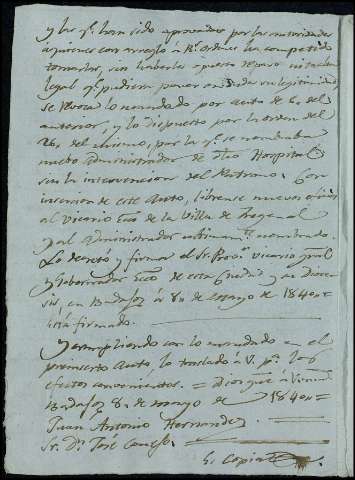 y las qe. han sido aprovadas por las autoridades
aquienes con arreglo á Rs. ordenes ha competido
tomarlas, sin haberse opuesto reparo ni tacha
legal qe. pudiera poner en duda su legitimidad,
se revoca lo mandado por auto de 6, del
anterior, y lo dispuesto por la orden del
26, del mismo, por la qe. se nombraba
nuebo Administrador de dho Hospital
sin la intervencion del Patrono. Con
insercion de este Auto, librense nuevos oficios
al vicario eco. de la Villa de Fregenal
y al Administrador nombrado.
Lo decretó y firmó el Sr. Provr. vicario gral
y Gobernador Eco. de esta Ciudad y su Dioce
sis, en Badajoz á 8,, de Mayo de 1840,,=
Está firmado.
Y cumpliendo con lo mandado en el
preinserto Auto, lo traslado á V. pa. los
efectos convenientes. = Dios gue á V. ms. as.
Badajoz 8, de mayo de 1840,,=
Juan Antonio Hernandez.
Sr. Dn. José
Es Copia